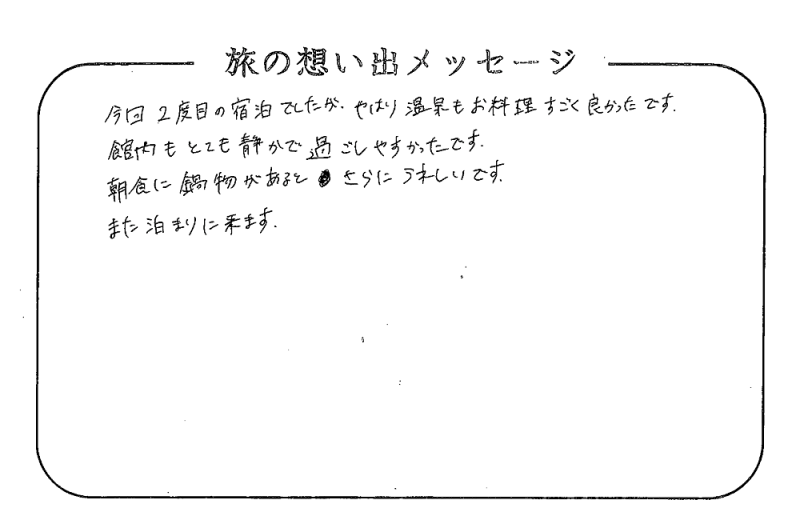 旅の想い出メッセージ
今回2度目の宿泊でしたが、やはり温泉もお料理すごく良かったです。
館内もとても静かで過ごしやすかったです。
朝食に鍋物があるとさらにうれしいです。
また泊まりに来ます。